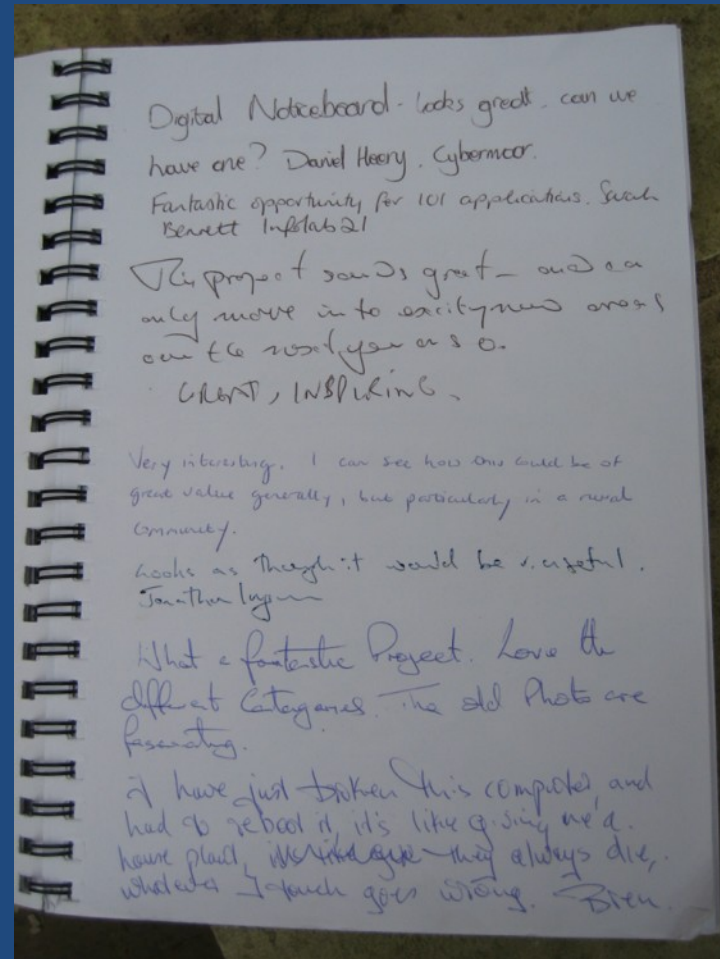 Digital Noticeboard - looks great. can we
have one? Daniel Heery. Cybermoor.
Fantastic opportunity for 101 applications. Sarah
Bennett Infolab21
This project sounds great - and can
only move in to exciting new areas
over the next year or so.
GREAT, INSPIRING.
Very interesting. I can see how this could be of
great value generally, but particularly in a rural
community.
Looks as though it would be v. useful.
Jonathan
What a fantastic Project. Love the
different Catagories. The old Photo are
fascinating.
I have just broken this computer, and
had to reboot it, it's like giving me a
house plant, they always die,
whatever I touch goes wrong. Bren.